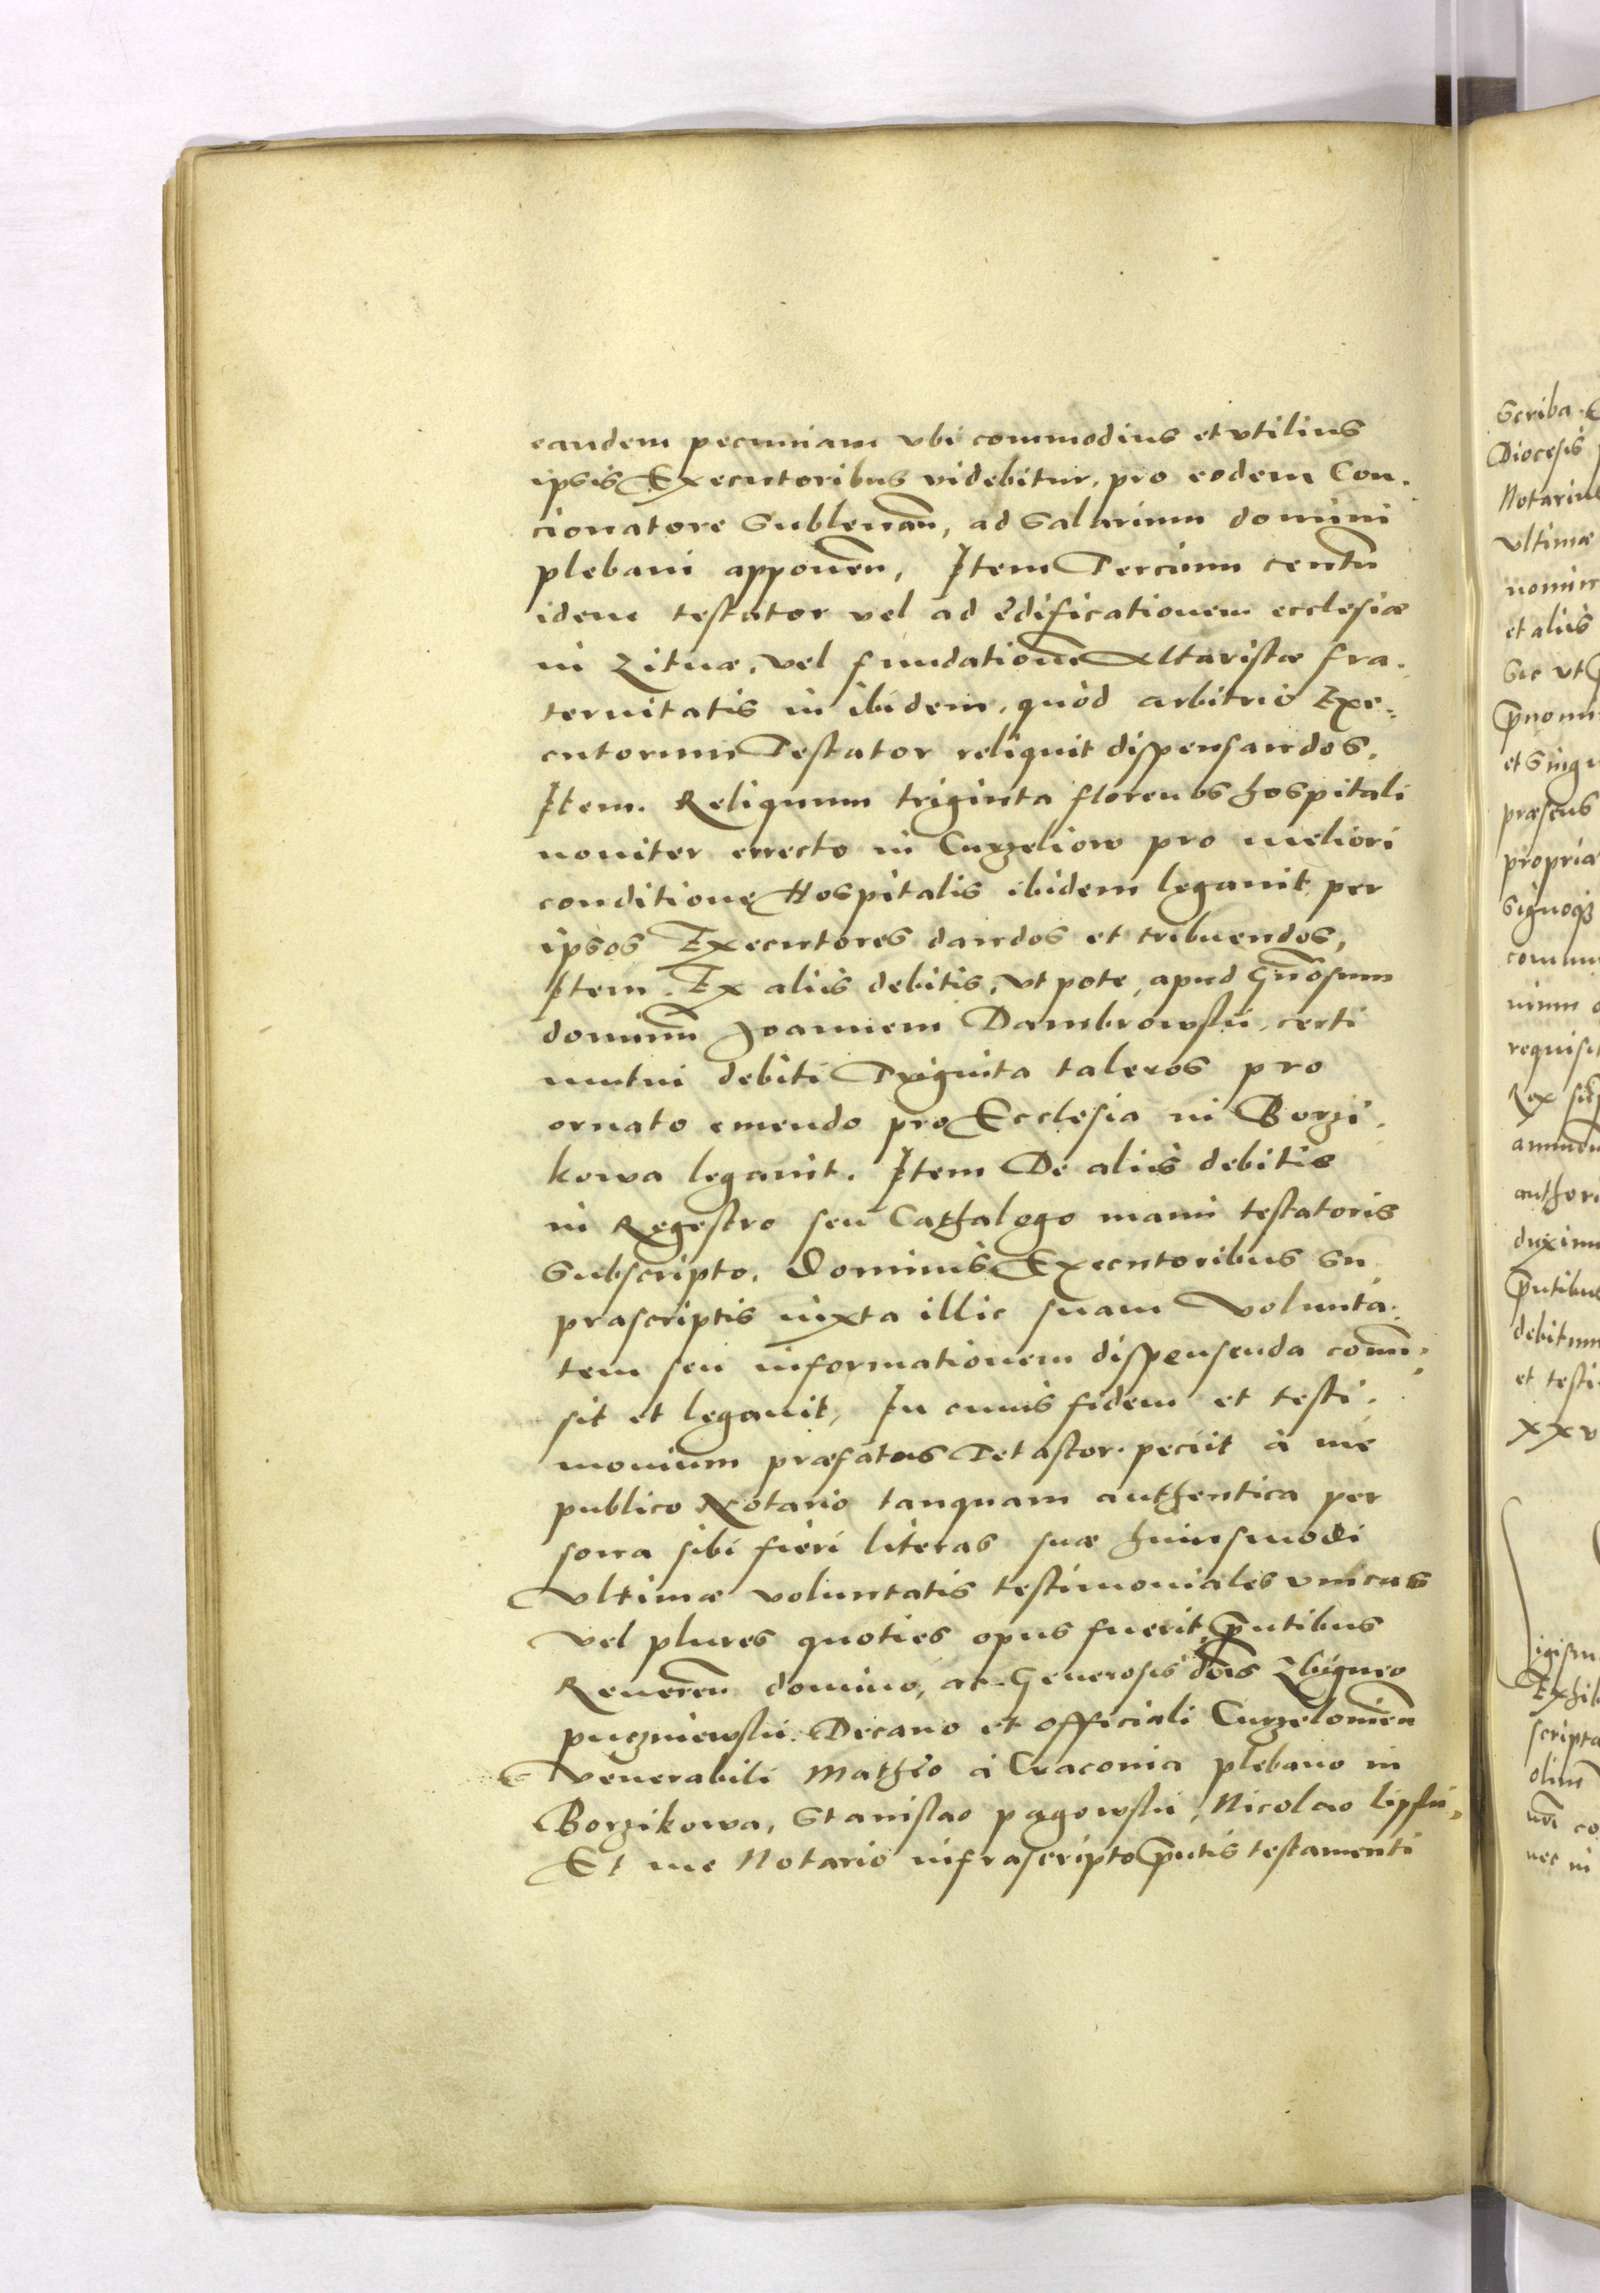 eandem pecuniam vbi commodius et vtilius
ipsis Executoribus videbitur, pro eodem Con.
cionatore Subleuan̄, ad Salarium domini
plebani apponen̄, Item Tercium centū
idem testator vel ad ędificationem ecclesiæ
in Zitnæ, vel fundationē Altaristæ fra.
ternitatis in ibidem, quòd arbitrio Exe„
cutorum Testator reliquit dispensandos.
Item. Reliquum triginta florenos hospitali
nouiter errecto in Curzeliow pro meliori
conditione Hospitalis ibidem legauit per
ipsos Executores dandos et tribuendos,
Item. Ex aliis debitis, vt pote, apud Gn̄osum
dominū Joannem Dambrowskii, certi
mutui debiti Triginta taleros pro
ornato emendo pro Ecclesia in Borzi.
kowa legauit. Item De aliis debitis
in Regestro seu Cathalogo manu testatoris
Subscripto. Dominis Executoribus su
prascriptis iuxta illic suam Volunta.
tem seu informationem dispensenda com̄i„
sit et legauit, In cuius fidem et testi.
monium præfatus Tetastor. peciit à me
publico Notario tanquam authentica per
sona sibi fieri literas suæ huiusmodi
vltimæ voluntatis testimoniales vnicas
vel plures quoties opus fuerit, p̄ntibus
Reueren̄ domino, ac Generosis dn̄is Zbigneo
puczniewskii. Decano et officiali Curzelouien̄
Venerabili Mathęo à Cracouia plebano in
Borzikowa, Stanislao pągowskii, Nicolao lipskii,
Et me Notario infrascripto p̄ntis testamenti
Scriba
Diocesis
Notarius
vltimæ
nomin
et aliis
Sic vt
p̄nomi
et Singu
præsens
propriæ
Signoq3
commu
nium
requisit
Rex
authori
duximu
p̄ntibus
debitum
et testi
XXV
igism
Exhib
scripta
olim
nec in